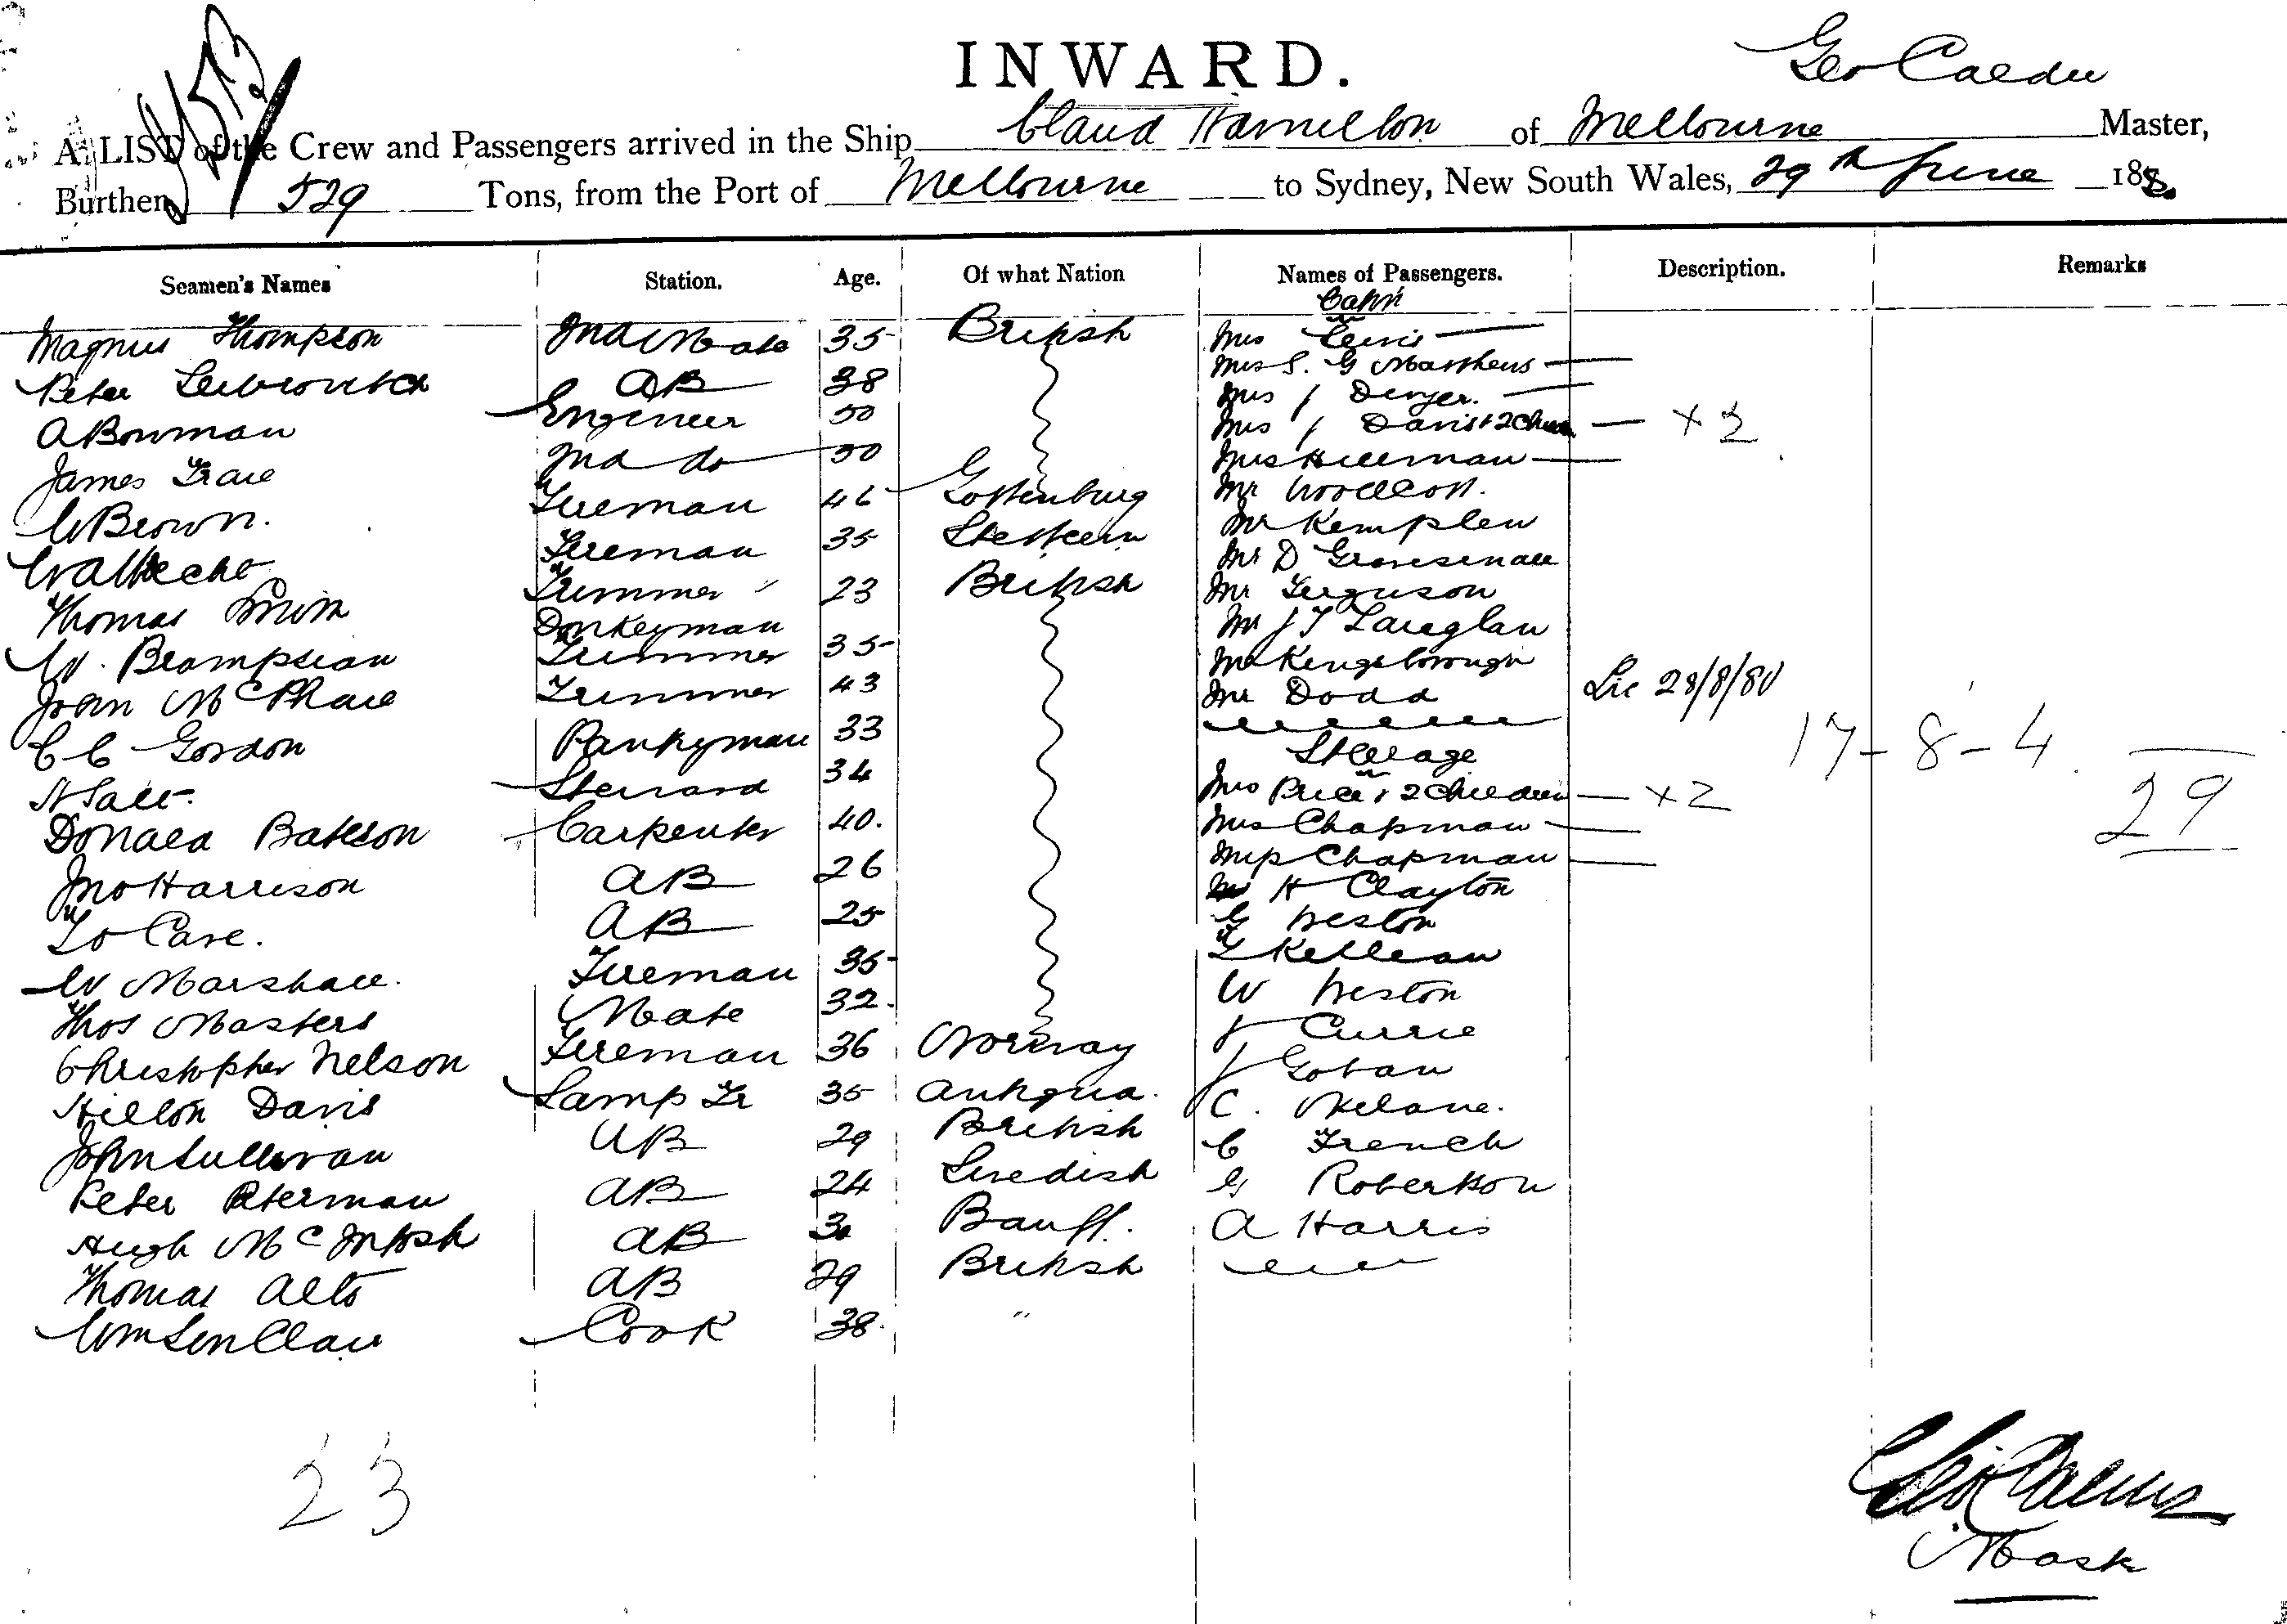 INWARD.
Geo Calder
A LIST of the Crew and Passengers arrived in the Ship Claud Hamilton of Melbourne Master,
Burthen 529 Tons, from the Port of Melbourne to Sydney, New South Wales, 29th June 188
Seamen's Names Station. Age. Of what Nation Names of Passengers. Description. Remarks
Cabin
Magnus Thompson 2nd Mate 35 British Mrs Lewis
Peter AB 38 Mrs S. G Matthews
A Bowman Engineer 50 Mrs J Dwyer.
James 2nd do 50 Mrs J Davis + 2 Chn × 2
W Brown. Fireman 46 Gottenburg Mrs Hillman
Mr Woolcott.
Fireman 35 Stettein Mr Kemplen
Thomas Smith Trimmer 23 British Mr D
Mr Ferguson
W. Brampsian Donkeyman Trimmer 35 Mr J T
John McPhail Trimmer 43 Mr Kingsborough
C C Gordon Pantryman 33 Mr Dodd Lic 28/8/80
17-8-4. 29
Steerage
N Steward 34 Mrs Price + 2 Children × 2
Donald Bateson Carpenter 40. Mrs Chapman
Jno Harrison AB 26 Miss Chapman
H Clayton
AB 25 G Weston
W Marshall. Fireman 35 Kellean
Thos Masters Mate 32. W Weston
J Currie
Christopher Nelson Fireman 36 Norway J Goban
Hilton Davis Lamp Tr 35 Antigua. C.
John Sullivan AB 29 British C French
Peter Peterman AB 24 Swedish G Robertson
Hugh McIntosh AB 30 Banff. A Harris
Thomas Alto AB 29 British
Wm Sinclair Cook 38 "
23
Geo Calder
Mast